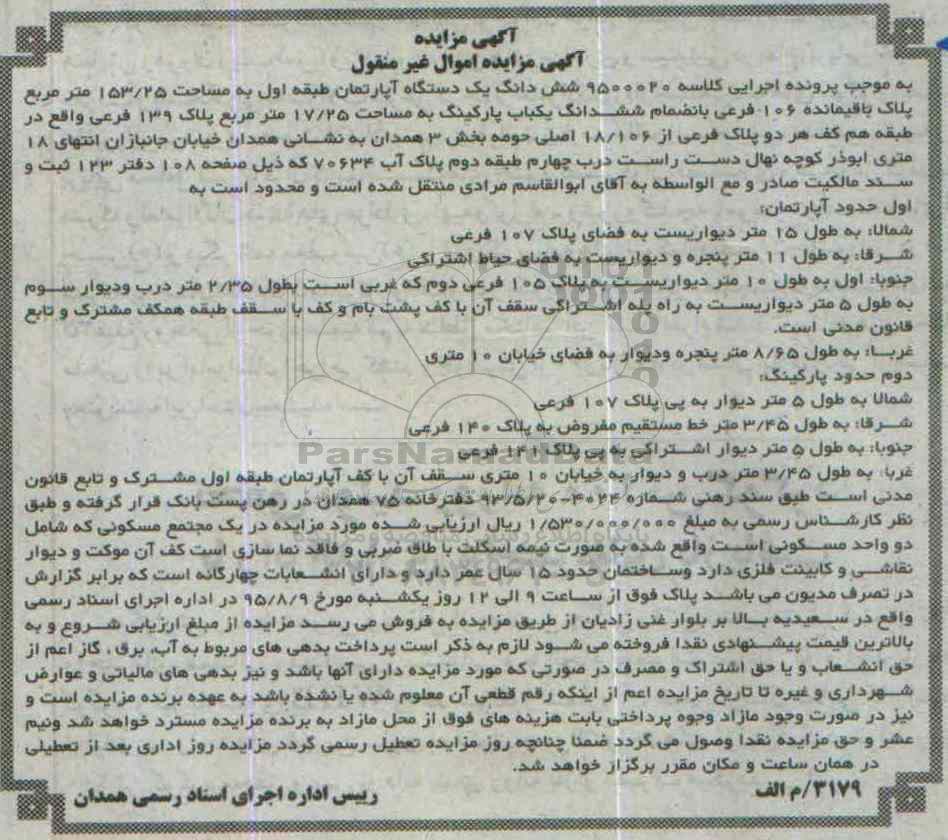 آگهی مزایده
آگهی مزایده اموال غیر منقول
به موجب پرونده اجرایی کلاسه ۹۵۰۰۰۲۰ شش دانگ یک دستگاه آپارتمان طبقه اول به مساحت ۱۵۳/۲۵ متر مربع
پلاک باقیمانده ۱۰۶ فرعی بانضمام ششدانگ یکباب پارکینگ به مساحت ۱۷/۲۵ متر مربع پلاک ۱۳۹ فرعی واقع در
طبقه هم کف هر دو پلاک فرعی از ۱۸/۱۰۶ اصلی حومه بخش ۳ همدان به نشانی همدان خیابان جانبازان انتهای ۱۸
متری ابوذر کوچه نهال دست راست درب چهارم طبقه دوم پلاک آب ۷۰۶۳۴ که ذیل صفحه ۱۰۸ دفتر ۱۲۳ ثبت و
سند مالکیت صادر و مع الواسطه به آقای ابوالقاسم مرادی منتقل شده است و محدود است به
اول حدود آپارتمان:
شمالا: به طول ۱۵ متر دیواریست به فضای پلاک ۱۰۷ فرعی
شرقا: به طول ۱۱ متر پنجره و دیواریست به فضای حیاط اشتراکی
جنوبا: اول به طول ۱۰ متر دیواریست به پلاک ۱۰۵ فرعی دوم که غربی است بطول ۲/۳۵ متر درب ودیوار سوم
به طول ۵ متر دیواریست به راه پله اشتراکی سقف آن با کف پشت بام و کف با سقف طبقه همکف مشترک و تابع
قانون مدنی است.
غربا: به طول ۸/۶۵ متر پنجره ودیوار به فضای خیابان ۱۰ متری
دوم حدود پارکینگ:
شمالا به طول ۵ متر دیوار به پی پلاک ۱۰۷ فرعی
شرقا: به طول ۳/۴۵ متر خط مستقیم مفروض به پلاک ۱۴۰ فرعی
جنوبا: به طول ۵ متر دیوار اشتراکی به پی پلاک ۱۴۱ فرعی
ParsNamadData
غربا: به طول ۳/۴۵ متر درب و دیوار به خیابان ۱۰ متری سقف آن با کف آپارتمان طبقه اول مشترک و تابع قانون
مدنی است طبق سند رهنی شماره ۴۰۲۴-۹۳/۵/۲۰ دفترخانه ۷۵ همدان در رهن پست بانک قرار گرفته و طبق
نظر کارشناس رسمی به مبلغ ۱/۵۳۰/۰۰۰/۰۰۰ ریال ارزیابی شده مورد مزایده در یک مجتمع مسکونی که شامل
دو واحد مسکونی است واقع شده به صورت نیمه اسکلت با طاق ضربی و فاقد نما سازی است کف آن موکت و دیوار
نقاشی و کابینت فلزی دارد وساختمان حدود ۱۵ سال عمر دارد و دارای انشعابات چهارگانه است که برابر گزارش
در تصرف مدیون می باشد پلاک فوق از ساعت ۹ الی ۱۲ روز یکشنبه مورخ ۹۵/۸/۹ در اداره اجرای اسناد رسمی
واقع در سعیدیه بالا بر بلوار غنی زادیان از طریق مزایده به فروش می رسد مزایده از مبلغ ارزیابی شروع و به
بالاترین قیمت پیشنهادی نقدا فروخته می شود لازم به ذکر است پرداخت بدهی های مربوط به آب، برق ، گاز اعم از
حق انشعاب و یا حق اشتراک و مصرف در صورتی که مورد مزایده دارای آنها باشد و نیز بدهی های مالیاتی و عوارض
شهرداری و غیره تا تاریخ مزایده اعم از اینکه رقم قطعی آن معلوم شده یا نشده باشد به عهده برنده مزایده است و
نیز در صورت وجود مازاد وجوه پرداختی بابت هزینه های فوق از محل مازاد به برنده مزایده مسترد خواهد شد ونیم
عشر و حق مزایده نقدا وصول می گردد ضمنا چنانچه روز مزایده تعطیل رسمی گردد مزایده روز اداری بعد از تعطیلی
در همان ساعت و مکان مقرر برگزار خواهد شد.
۳۱۷۹/م الف
رییس اداره اجرای اسناد رسمی همدان